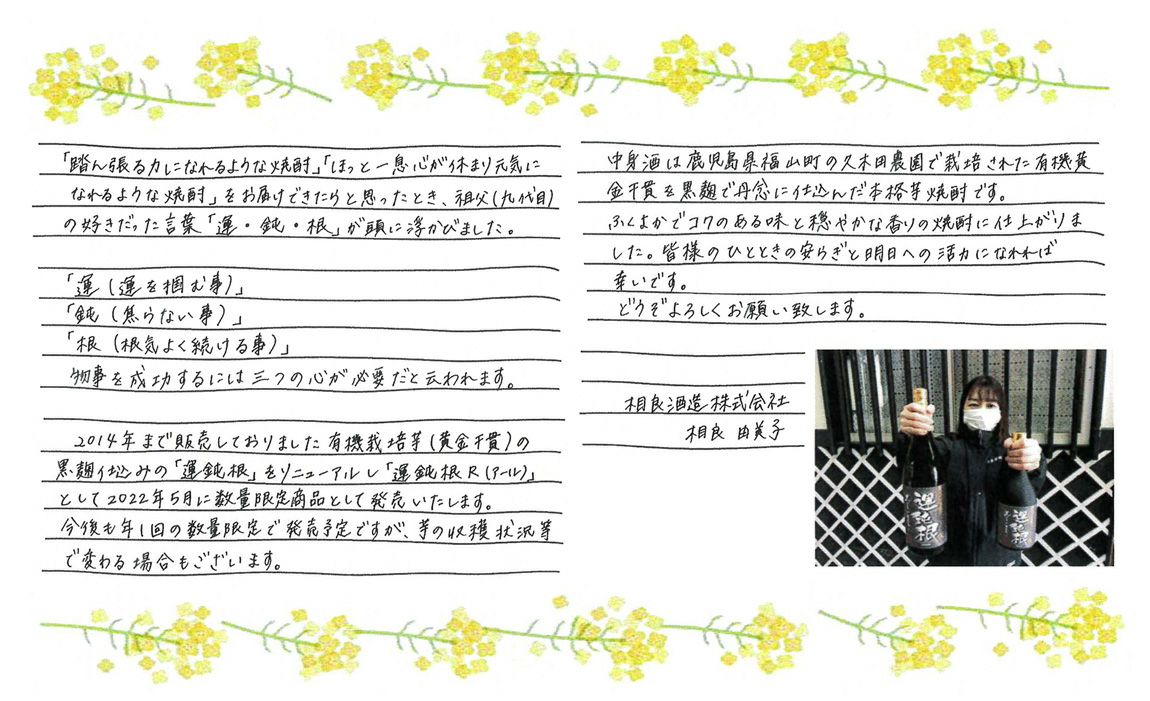 「踏ん張る力になれるような焼酎」「ほっと一息心が休まり元気に
なれるような焼酎」をお届けできたらと思ったとき、祖父(九代目)
の好きだった言葉「運・鈍・根」が頭に浮かびました。
「運(運を掴む事)」
「鈍(焦らない事)」
「根(根気よく続ける事)」
物事を成功するには三つの心が必要だと云われます。
2014年まで販売しておりました有機栽培芋(黄金千貫)の
黒麹仕込みの「運鈍根」をリニューアルし「運鈍根R(アール)」
として2022年5月に数量限定商品として発売いたします。
今後も年1回の数量限定で発売予定ですが、芋の収穫状況等
で変わる場合もございます。
中身酒は鹿児島県福山町の久木田農園で栽培された有機黄
金千貫を黒麹で丹念に仕込んだ本格芋焼酎です。
ふくよかでコクのある味と穏やかな香りの焼酎に仕上がりま
した。皆様のひとときの安らぎと明日への活力になれれば
幸いです。
どうぞよろしくお願い致します。
相良酒造株式会社
相良 由美子
運鈍根
運鈍根